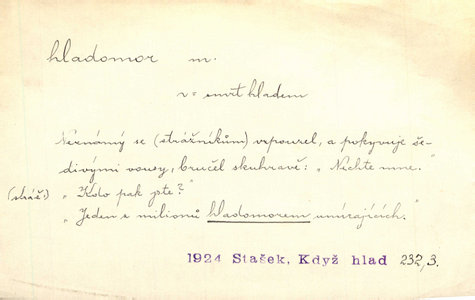 hladomor m.
v = smrt hladem
Neznámý se (strážníkům) vzpouzel, a pokyvuje še-
divými vousy, bručel skuhravě: „Nechte mne."
(stráž:) „Kdo pak jste?"
„Jeden z milionů hladomorem umírajících."
1924 Stašek, Když hlad 232,3.